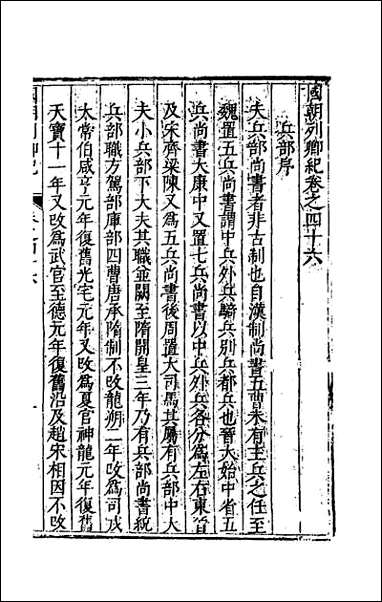 國朝列卿紀卷之四十六
兵部序
夫兵部尚書者非古制也自漢制尚書五曹未有主兵之任至
魏置五兵尚書謂中兵外兵騎兵別兵都兵也晉太始中省五
兵尚書太康中又置七兵尚書以中兵外兵各分爲左右東晉
及宋齊梁陳又爲五兵尚書後周置大司馬其屬有兵部中大
夫小兵部下大夫其職並闕至隋開皇三年乃有兵部尚書統
兵部職方駕部庫部四曹唐承隋制不改龍朔二年改爲司戎
太常伯咸亨元年復舊光宅元年又改爲夏官神龍元年復舊
天寶十一年又改爲武官至德元年復舊沿及趙宋相因不改